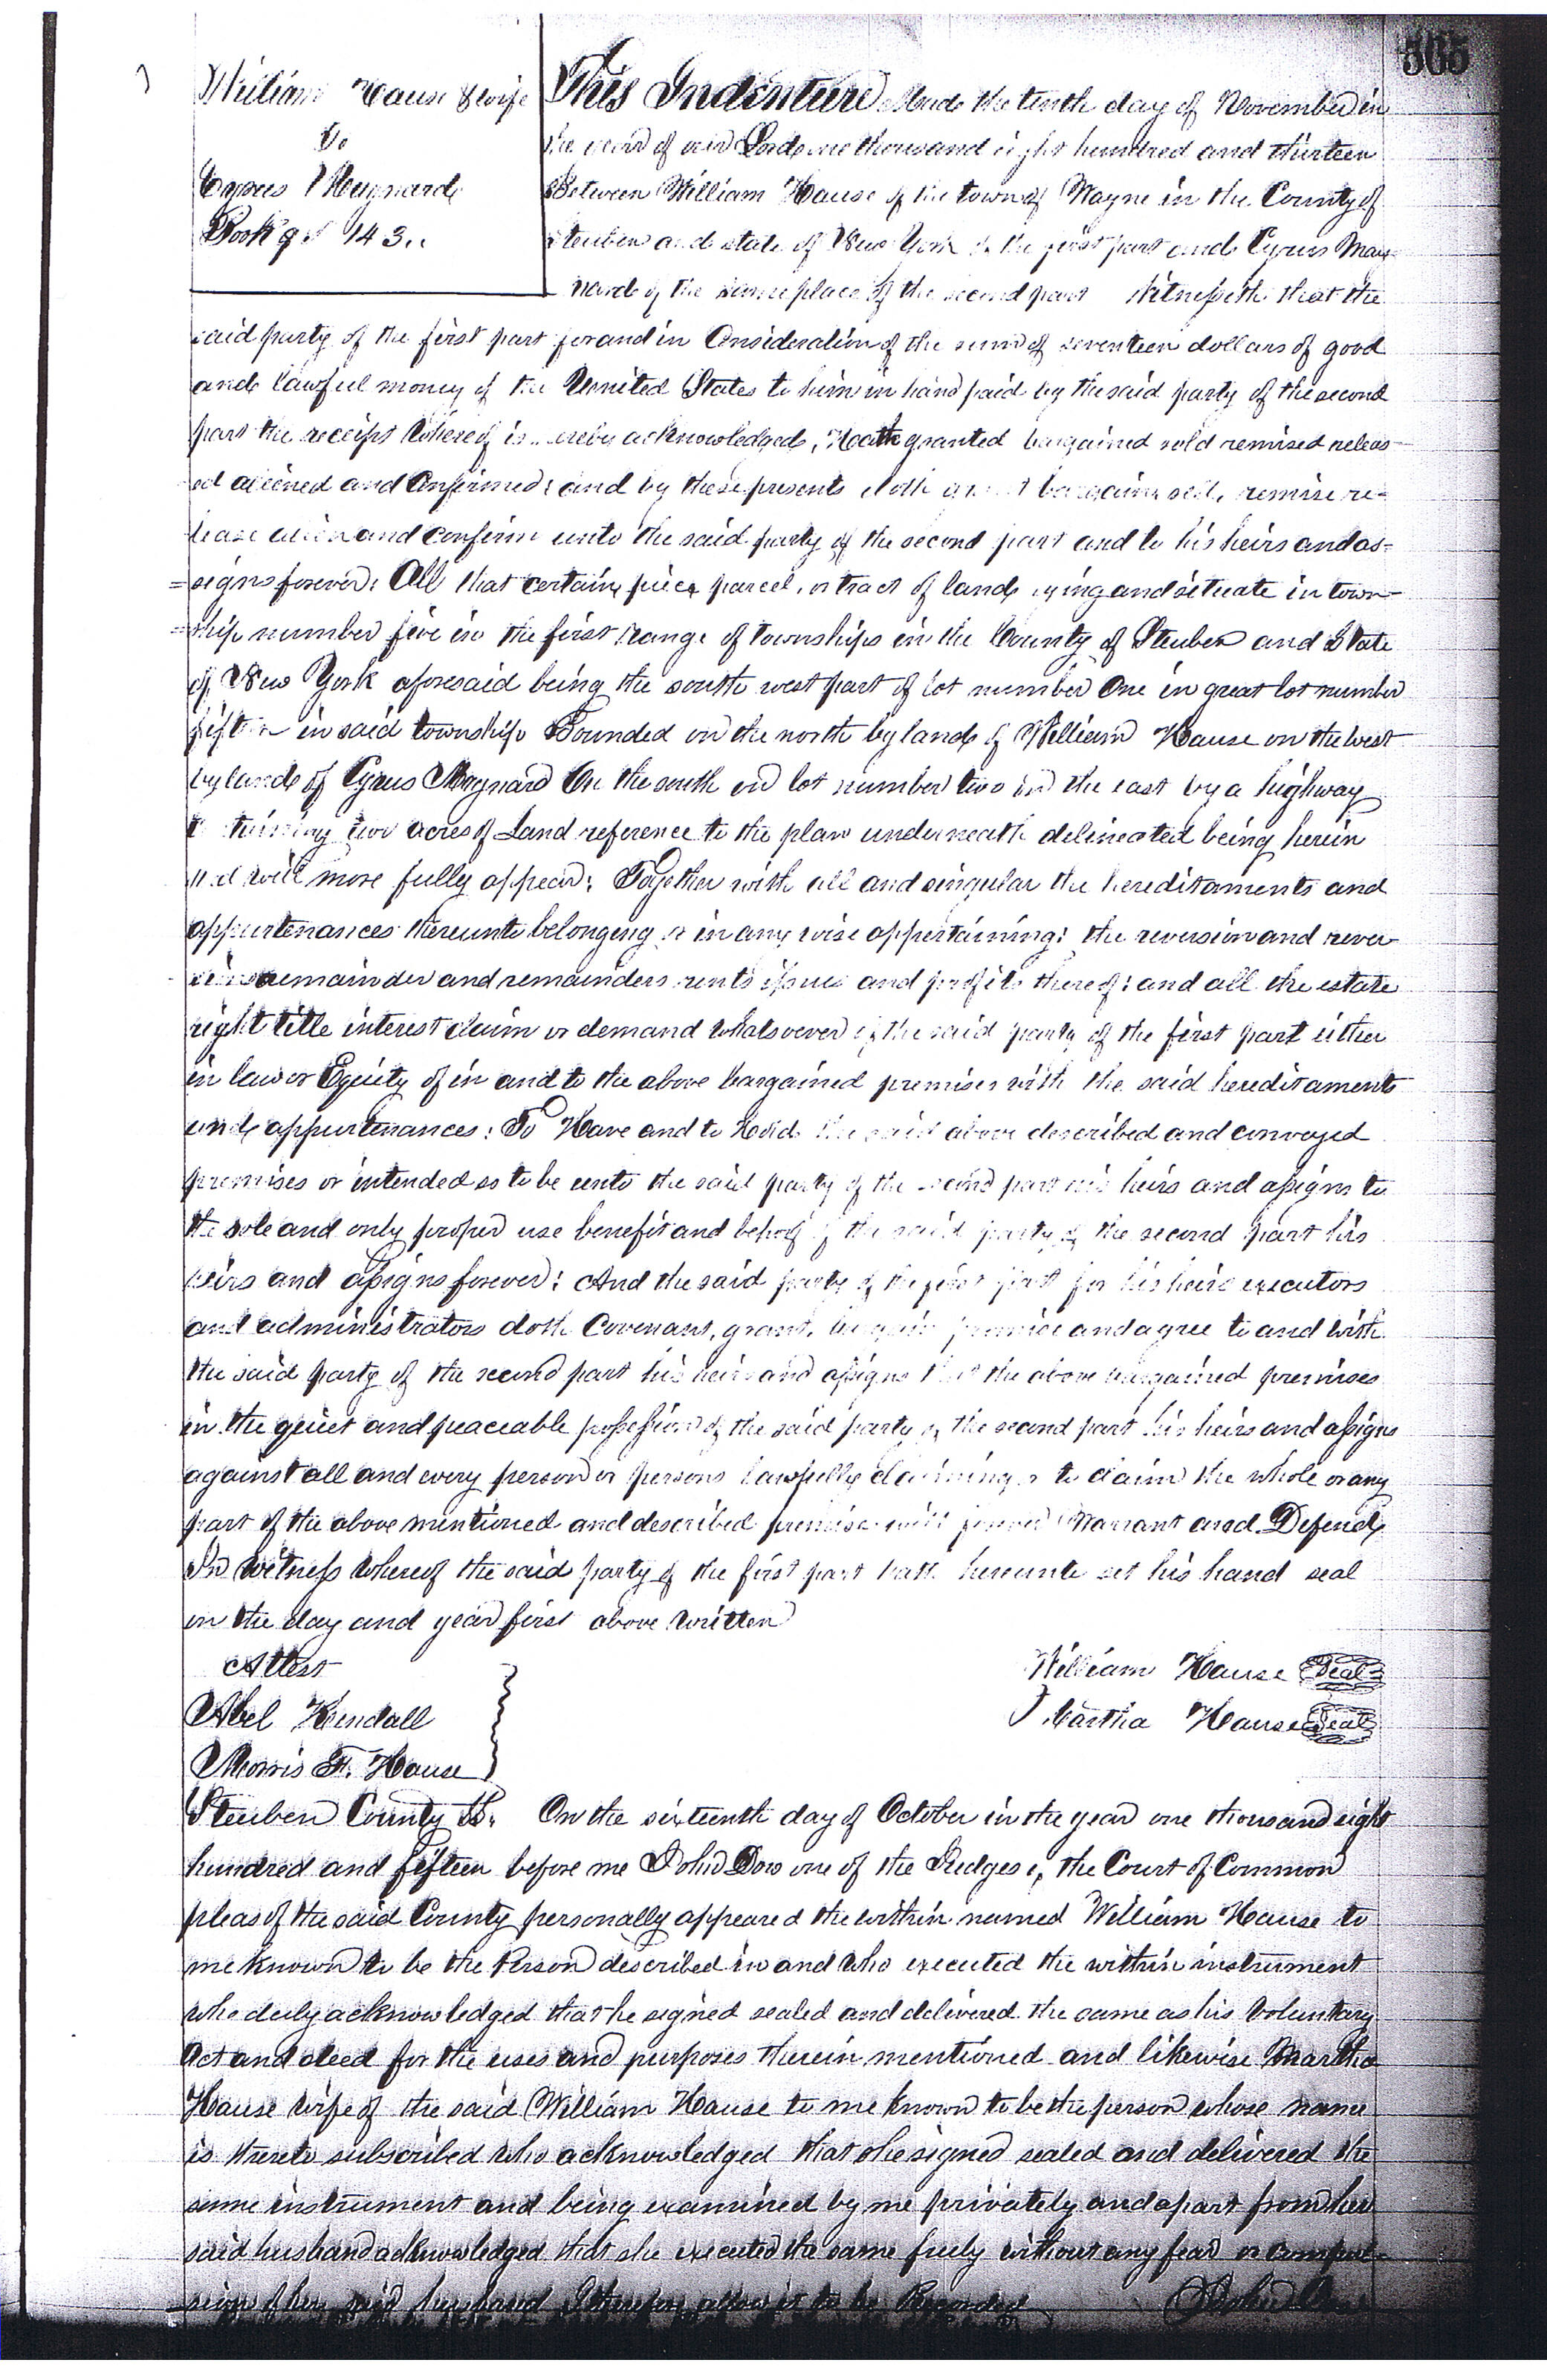 505
William Hause & wife
To
Cyrus Maynard
Book 9 143
This Indenture Made the tenth day of November in
the year of our Lord one thousand eight hundred and thirteen
Between William Hause of the town of Wayne in the County of
Steuben and state of New York of the first part and Cyrus May
nard of the same place of the second part witnesseth that the
said party of the first part for and in Consideration of the sum of seventeen dollars of good
and lawful money of the United States to him in hand paid by the said party of the second
part the receipt whereof is hereby acknowledged, Hath granted bargained sold remised releas-
ed aliened and Confirmed; and by these presents doth grant bargain sell, remise re-
lease alien and confirm unto the said party of the second part and to his heirs and as=
=signs forever: All that certain piece parcel, or tract of land lying and situate in town-
=ship number five in the first range of townships in the County of Steuben and State
of New York aforesaid being the south west part of lot number One in great lot number
fifteen in said township Bounded on the north by land of William Hause on the west
by land of Cyrus Maynard On the south on lot number two on the east by a highway
Containing two acres of Land reference to the plan underneath delineated being herein
had will more fully appear: Together with all and singular the hereditaments and
appurtenances thereunto belonging or in any wise appertaining: the reversion and rever
sions remainder and remainders rents issues and profits thereof: and all the estate
right title interest claim or demand whatsoever of the said party of the first part either
in law or Equity of in and to the above bargained premises with the said hereditaments
and appurtenances: To Have and to Hold the said above described and conveyed
premises or intended so to be unto the said party of the second part his heirs and assigns to
the sole and only proper use benefit and behoof of the said party of the second part his
heirs and assigns forever: And the said party of the first part for his heirs executors
and administrators doth Covenant, grant, bargain promise and agree to and with
the said party of the second part his heirs and assigns that the above bargained premises
in the quiet and peaceable possession of the said party of the second part his heirs and assigns
against all and every person or persons lawfully claiming or to claim the whole or any
part of the above mentioned and described premises will forever Warrant and Defend
In witness whereof the said party of the first part hath hereunto set his hand seal
on the day and year first above written
Attest
William Hause Seal
Abel Kendall
Martha Hause Seal
Morris F. Hause
Steuben County Ss. On the sixteenth day of October in the year one thousand eight
hundred and fifteen before me John Dow one of the Judges of the Court of Common
pleas of the said County personally appeared the within named William Hause to
me known to be the Person described in and who executed the within instrument
who duly acknowledged that he signed sealed and delivered the same as his voluntary
Act and deed for the uses and purposes therein mentioned and likewise Martha
Hause wife of the said William Hause to me known to be the person whose name
is thereto subscribed who acknowledged that she signed sealed and delivered the
same instrument and being examined by me privately and apart from her
said husband acknowledged that she executed the same freely without any fear or compul-
sion of her said husband I therefore allow it to be Recorded John Dow